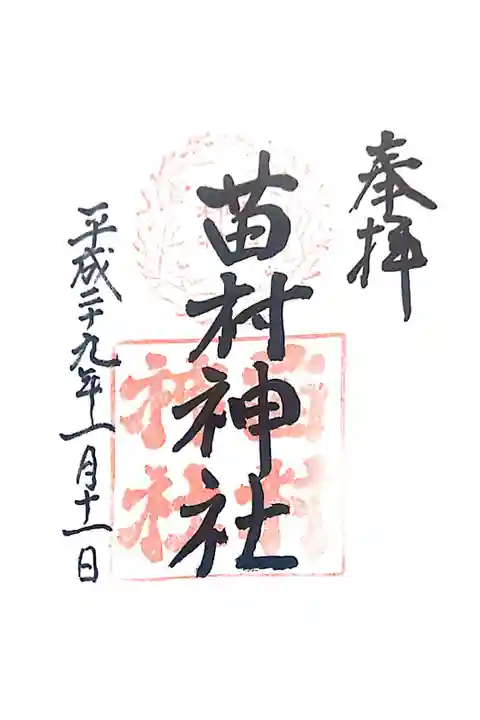 奉拝
苗村神社
平成二十九年一月十一日
苗村
神社